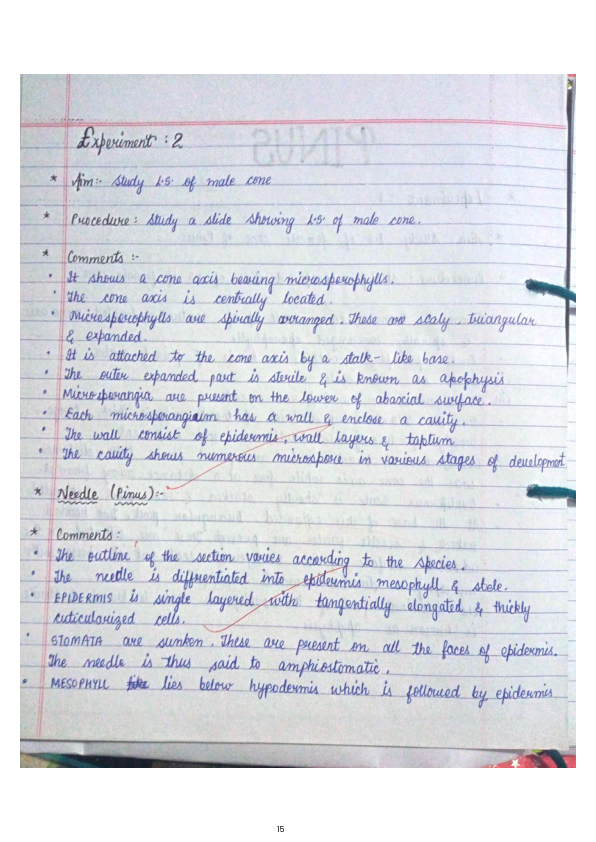 Experiment : 2
* Aim:- Study L.S. of male cone
* Procedure : Study a slide showing L.S. of male cone.
* Comments :-
• It shows a cone axis bearing microsporophylls.
• The cone axis is centrally located.
• Microsporophylls are spirally arranged. These are scaly, triangular
& expanded.
• It is attached to the cone axis by a stalk-like base.
• The outer expanded part is sterile & is known as apophysis
• Microsporangia are present on the lower of abaxial surface.
• Each microsporangiaum has a wall & enclose a cavity.
• The wall consist of epidermis, wall layers & taptum
• The cavity shows numerous microspore in various stages of development
* Needle (Pinus):-
* Comments :
• The outline of the section varies according to the species.
• The needle is diffrentiated into epidermis mesophyll & stele.
• EPIDERMIS is single layered with tangentially elongated & thickly
cuticularized cells.
• STOMATA are sunken. These are present on all the faces of epidermis.
The needle is thus said to amphiostomatic.
• MESOPHYLL lies below hypodermis which is followed by epidermis
15